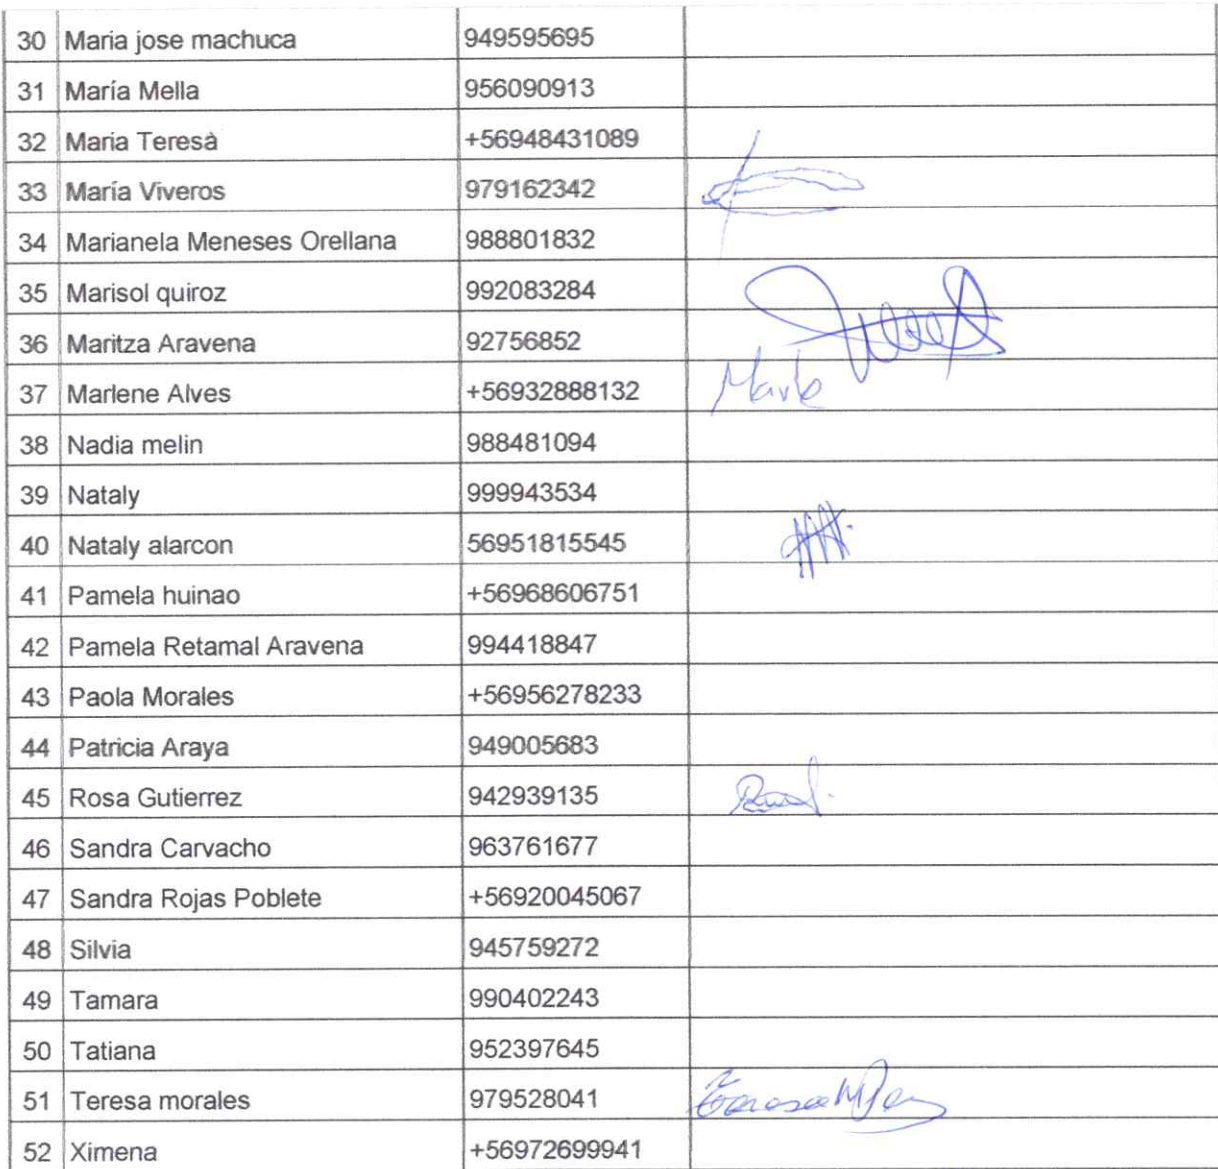 30 Maria jose machuca 949595695
31 María Mella 956090913
32 Maria Teresà +56948431089
33 María Viveros 979162342
34 Marianela Meneses Orellana 988801832
35 Marisol quiroz 992083284
36 Maritza Aravena 92756852
37 Marlene Alves +56932888132 Marle
38 Nadia melin 988481094
39 Nataly 999943534
40 Nataly alarcon 56951815545
41 Pamela huinao +56968606751
42 Pamela Retamal Aravena 994418847
43 Paola Morales +56956278233
44 Patricia Araya 949005683
45 Rosa Gutierrez 942939135
46 Sandra Carvacho 963761677
47 Sandra Rojas Poblete +56920045067
48 Silvia 945759272
49 Tamara 990402243
50 Tatiana 952397645
51 Teresa morales 979528041
52 Ximena +56972699941